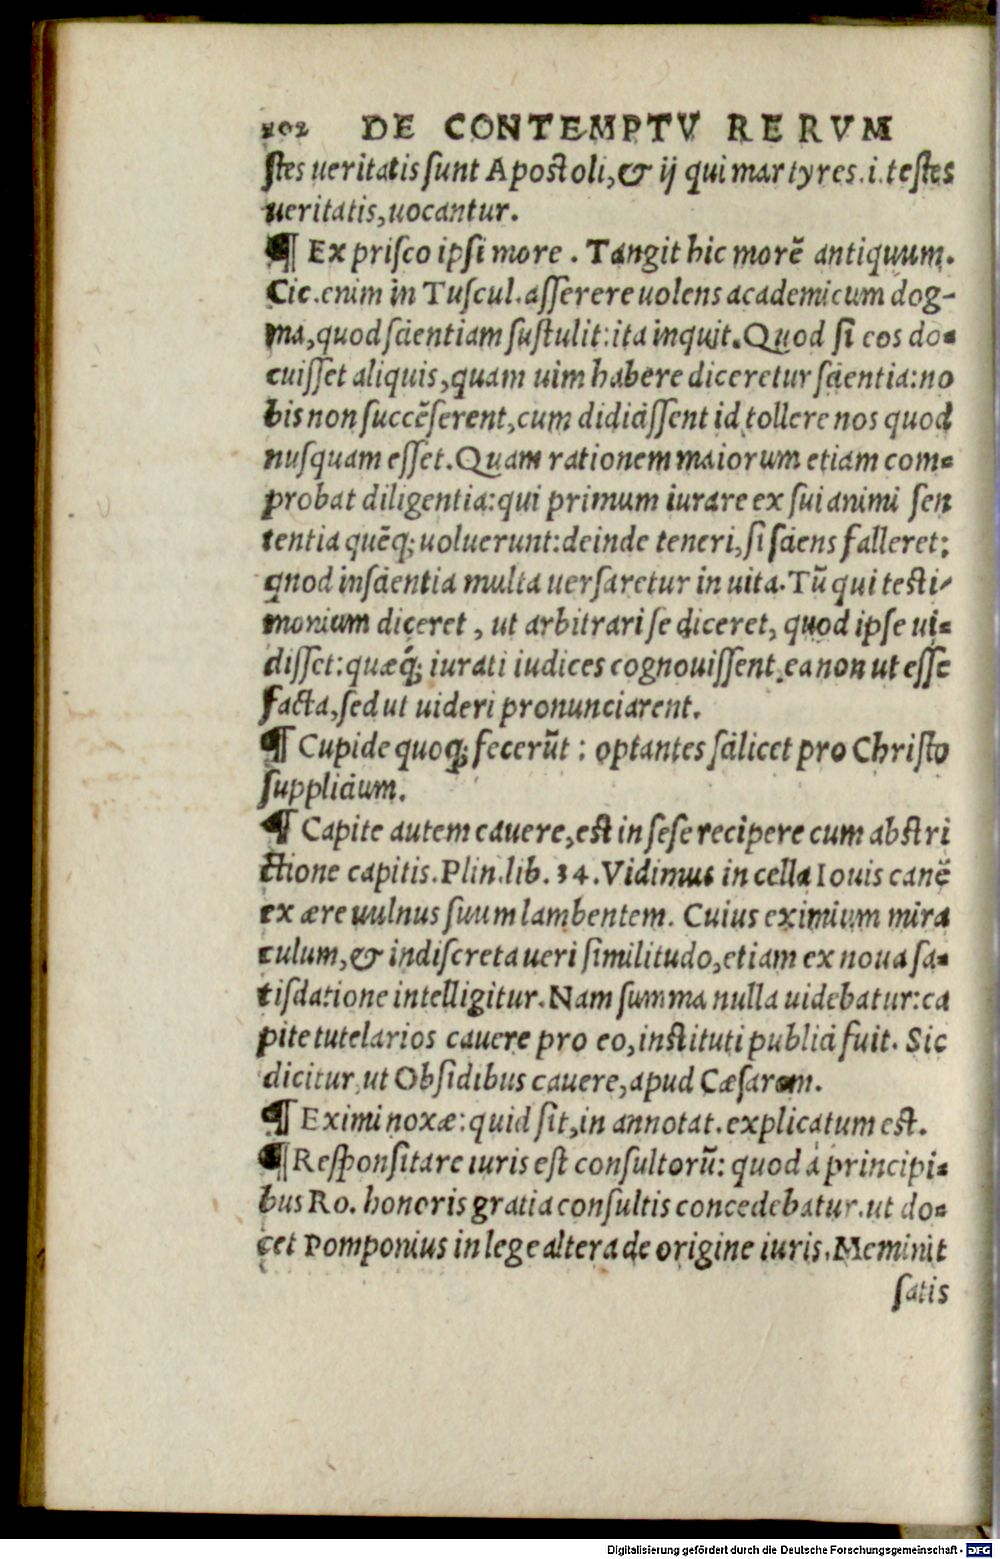 202 DE CONTEMPTV RERVM
stes ueritatis sunt Apostoli, & ij qui martyres .i. testes
ueritatis, uocantur.
¶ Ex prisco ipsi more. Tangit hic morē antiquum.
Cic. enim in Tuscul. asserere uolens academicum dog-
ma, quod scientiam sustulit: ita inquit. Quod si eos do-
cuisset aliquis, quam uim habere diceretur scientia: no
bis non succēserent, cum didicissent id tollere nos quod
nusquam esset. Quam rationem maiorum etiam com-
probat diligentia: qui primum iurare ex sui animi sen
tentia quēq; uoluerunt: deinde teneri, si sciens falleret:
qnod inscientia multa uersaretur in uita. Tū qui testi-
monium diceret, ut arbitrari se diceret, quod ipse ui-
disset: quæq́; iurati iudices cognouissent, ea non ut esse
facta, sed ut uideri pronunciarent.
¶ Cupide quoq; fecerūt: optantes scilicet pro Christo
supplicium.
¶ Capite autem cauere, est in sese recipere cum abstri
ctione capitis. Plin. lib. 34. Vidimus in cella Iouis canē
ex ære uulnus suum lambentem. Cuius eximium mira
culum, & indiscreta ueri similitudo, etiam ex noua sa-
tisdatione intelligitur. Nam summa nulla uidebatur: ca
pite tutelarios cauere pro eo, instituti publici fuit. Sic
dicitur ut Obsidibus cauere, apud Cæsarem.
¶ Eximi noxæ: quid sit, in annotat. explicatum est.
¶ Responsitare iuris est consultorū: quod à principi-
bus Ro. honoris gratia consultis concedebatur. ut do-
cet Pomponius in lege altera de origine iuris. Meminit
satis
Digitalisierung gefördert durch die Deutsche Forschungsgemeinschaft - DFG